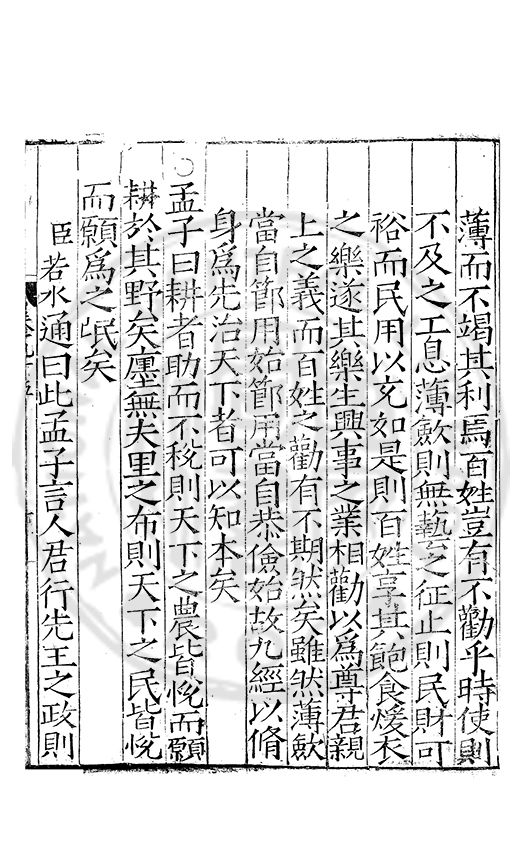 薄而不竭其利焉百姓豈有不勸乎時使則
不及之工息薄歛則無藝之征止則民財可
裕而民用以充如是則百姓享其飽食煖衣
之樂遂其樂生興事之業相勸以為尊君親
上之義而百姓之勸有不期然矣雖然薄歛
當自節用始節用當自恭儉始故九經以脩
身為先治天下者可以知本矣
孟子曰耕者助而不稅則天下之農皆悅而願
耕於其野矣廛無夫里之布則天下之民皆悅
而願為之氓矣
臣若水通曰此孟子言人君行先王之政則